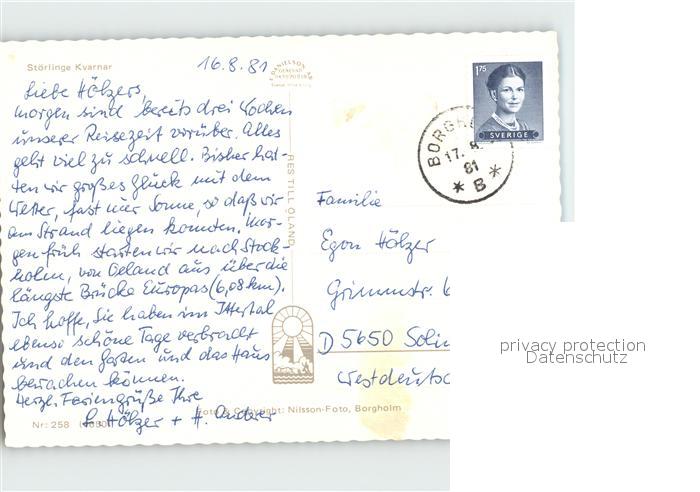 Störlinge Kvarnar
16.8.81
Liebe Hölzers,
morgen sind bereits drei Wochen
unserer Reisezeit vorüber. Alles
geht viel zu schnell. Bisher hat-
ten wir großes Glück mit dem
Wetter, fast nur Sonne, so daß wir
am Strand liegen konnten. Mor-
gen früh starten wir nach Stock-
holm, von Oeland aus über die
längste Brücke Europas (6,08 km).
Ich hoffe, Sie haben im Ittertal
ebenso schöne Tage verbracht
und den Garten und das Haus
bewachen können.
Herzl. Feriengrüße Ihre
Hölzer + H.
Nr: 258
Foto & Copyright: Nilsson-Foto, Borgholm
RES TILL ÖLAND
1.75
SVERIGE
BORGH
17. 8
81
* B *
Familie
Egon Hölzer
Grimmstr. 6
D 5650 Solin
Westdeutsc
privacy protection
Datenschutz